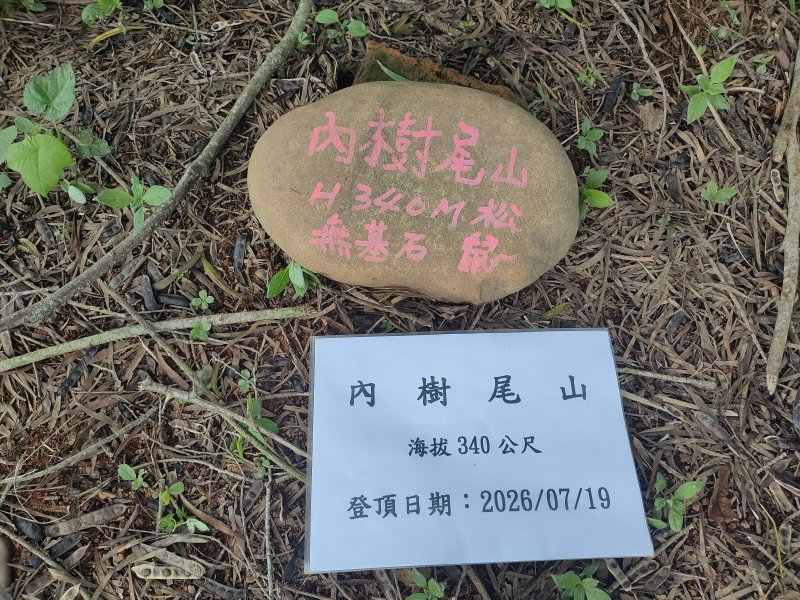 內樹尾山
H 340M 松
無基石 鼠
內樹尾山
海拔 340 公尺
登頂日期：2026/07/19